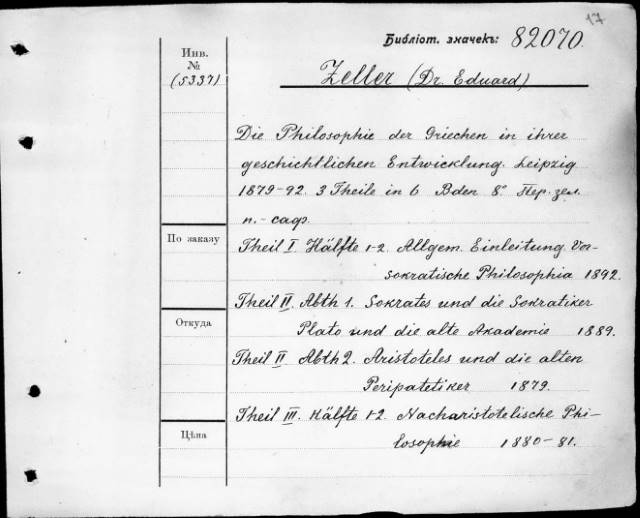 17
Библіот. значекъ: 82070.
Инв.
№
(5337)
Zeller (Dr. Eduard)
Die Philosophie der Griechen in ihrer
geschichtlichen Entwicklung. Leipzig
1879-92. 3 Theile in 6 Bden 8° Пер. зел.
п.-саф.
По заказу
Theil I Hälfte 1-2. Allgem. Einleitung Vor-
sokratische Philosophia 1892.
Theil II. Abth 1. Sokrates und die Sokratiker
Откуда
Plato und die alte Akademie 1889.
Theil II Abth 2. Aristoteles und die alten
Peripatetiker 1879.
Theil III. Hälfte 1-2. Nacharistotelische Phi-
Цѣна
losophie 1880-81.